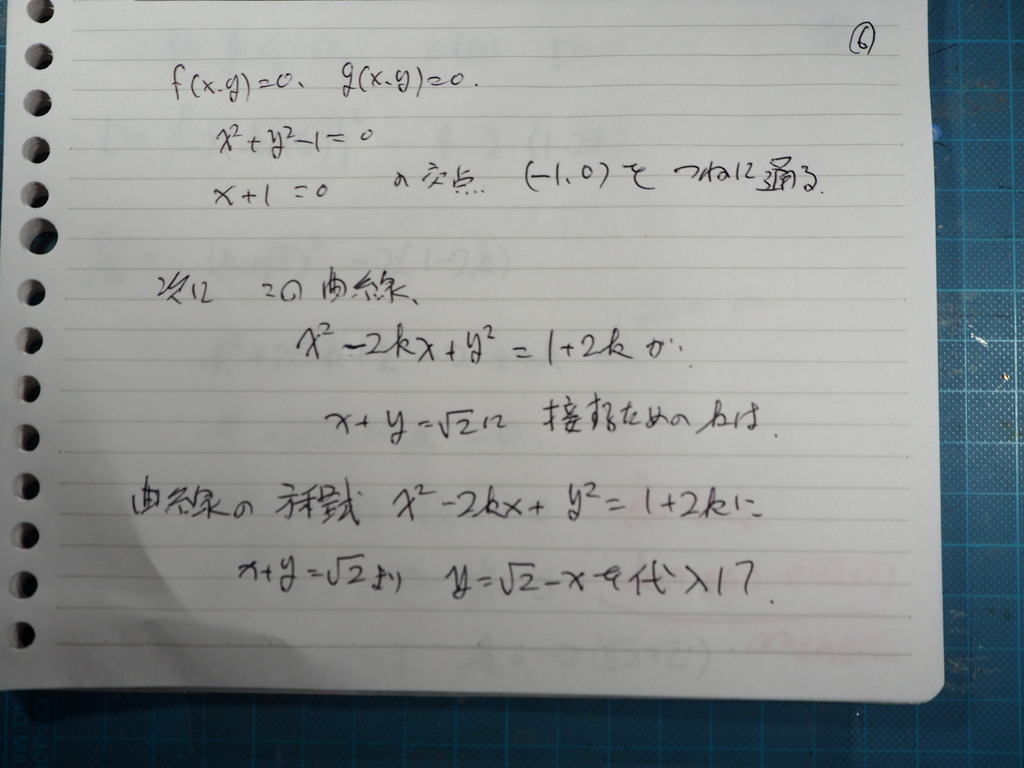 ⑥
f(x.y)=0、 g(x.y)=0.
x²+y²-1=0
x+1=0 の交点. (-1.0)を つねに通る.
次に この曲線、
x²-2kx+y²=1+2kが.
x+y=√2に 接するためのkは.
曲線の方程式 x²-2kx+y²=1+2kに
x+y=√2より y=√2-xを代入して.